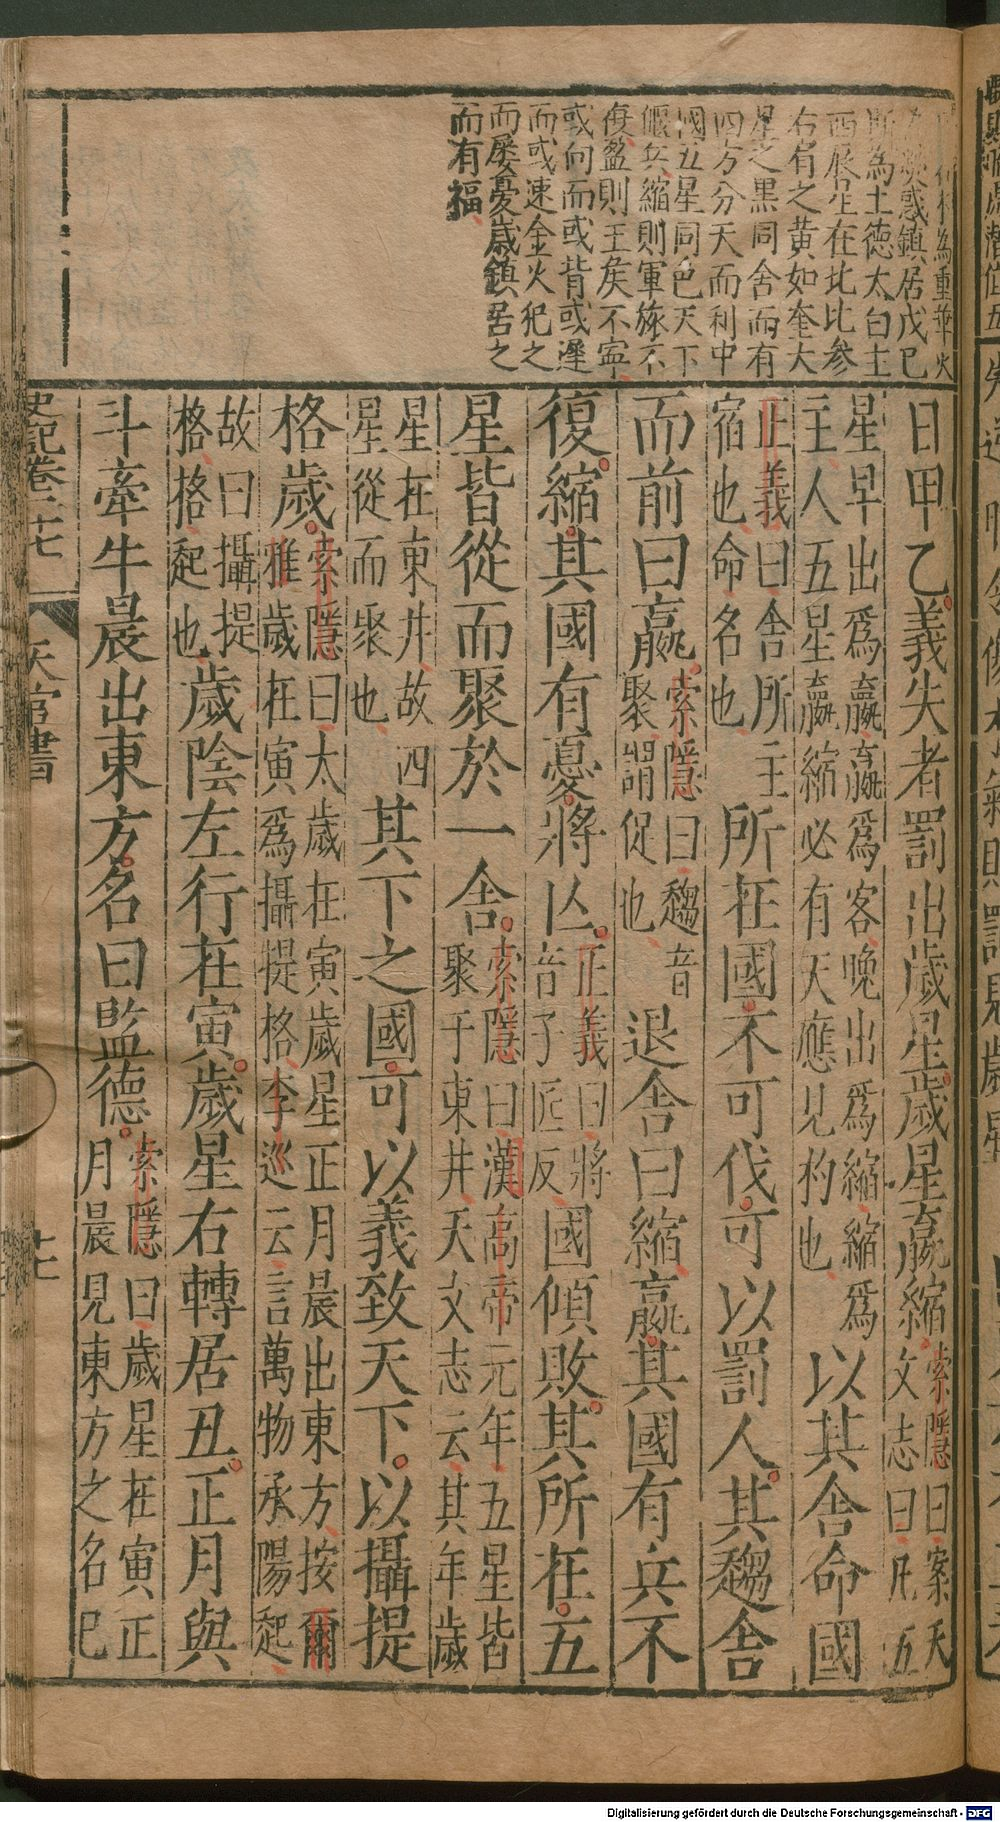 相為重華火
熒惑鎮居戊己
斯為土德太白主
西辰星在北比參
右肩之黃如奎大
星之黑同舍而有
四方分天而利中
國五星同色天下
偃兵縮則軍旅不
復盈則王矦不寧
或向而或背或遲
而或速金火犯之
而屢憂歲鎮居之
而有福
日甲乙義失者罰出歲星歲星嬴縮索隱曰案天
文志曰凡五
星早出爲嬴嬴爲客晚出爲縮縮爲
主人五星嬴縮必有天應見杓也以其舍命國
正義曰舍所主
宿也命名也所在國不可伐可以罰人其趨舍
而前曰嬴索隱曰趨音
聚謂促也退舍曰縮嬴其國有兵不
復縮其國有憂將亾正義曰將
音子匠反國傾敗其所在五
星皆從而聚於一舍索隱曰漢高帝元年五星皆
聚于東井天文志云其年歲
星在東井故四
星從而聚也其下之國可以義致天下以攝提
格歲索隱曰太歲在寅歲星正月晨出東方按爾
雅歲在寅爲攝提格李巡云言萬物承陽起
故曰攝提
格格起也歲陰左行在寅歲星右轉居丑正月與
斗牽牛晨出東方名曰監德索隱曰歲星在寅正
月晨見東方之名巳
史記卷二十七 天官書 十七
Digitalisierung gefördert durch die Deutsche Forschungsgemeinschaft - DFG